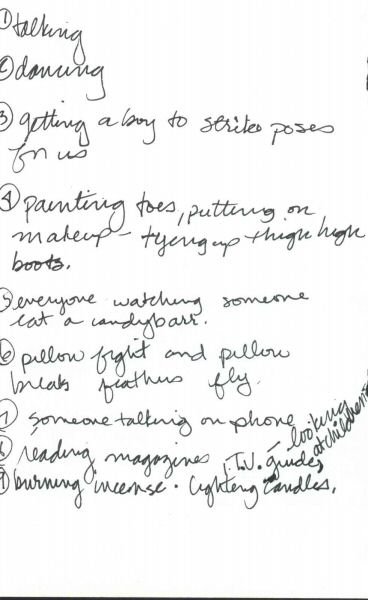 ① talking
② dancing
③ getting a boy to strike poses
for us
④ painting toes, putting on
makeup - tyeing up thigh high
boots.
⑤ everyone watching someone
eat a candybarr.
⑥ pillow fight and pillow
breaks feathers fly.
⑦ someone talking on phone
⑧ reading magazines, T.V. guides - looking
at children
⑨ burning incense. lighting candles.